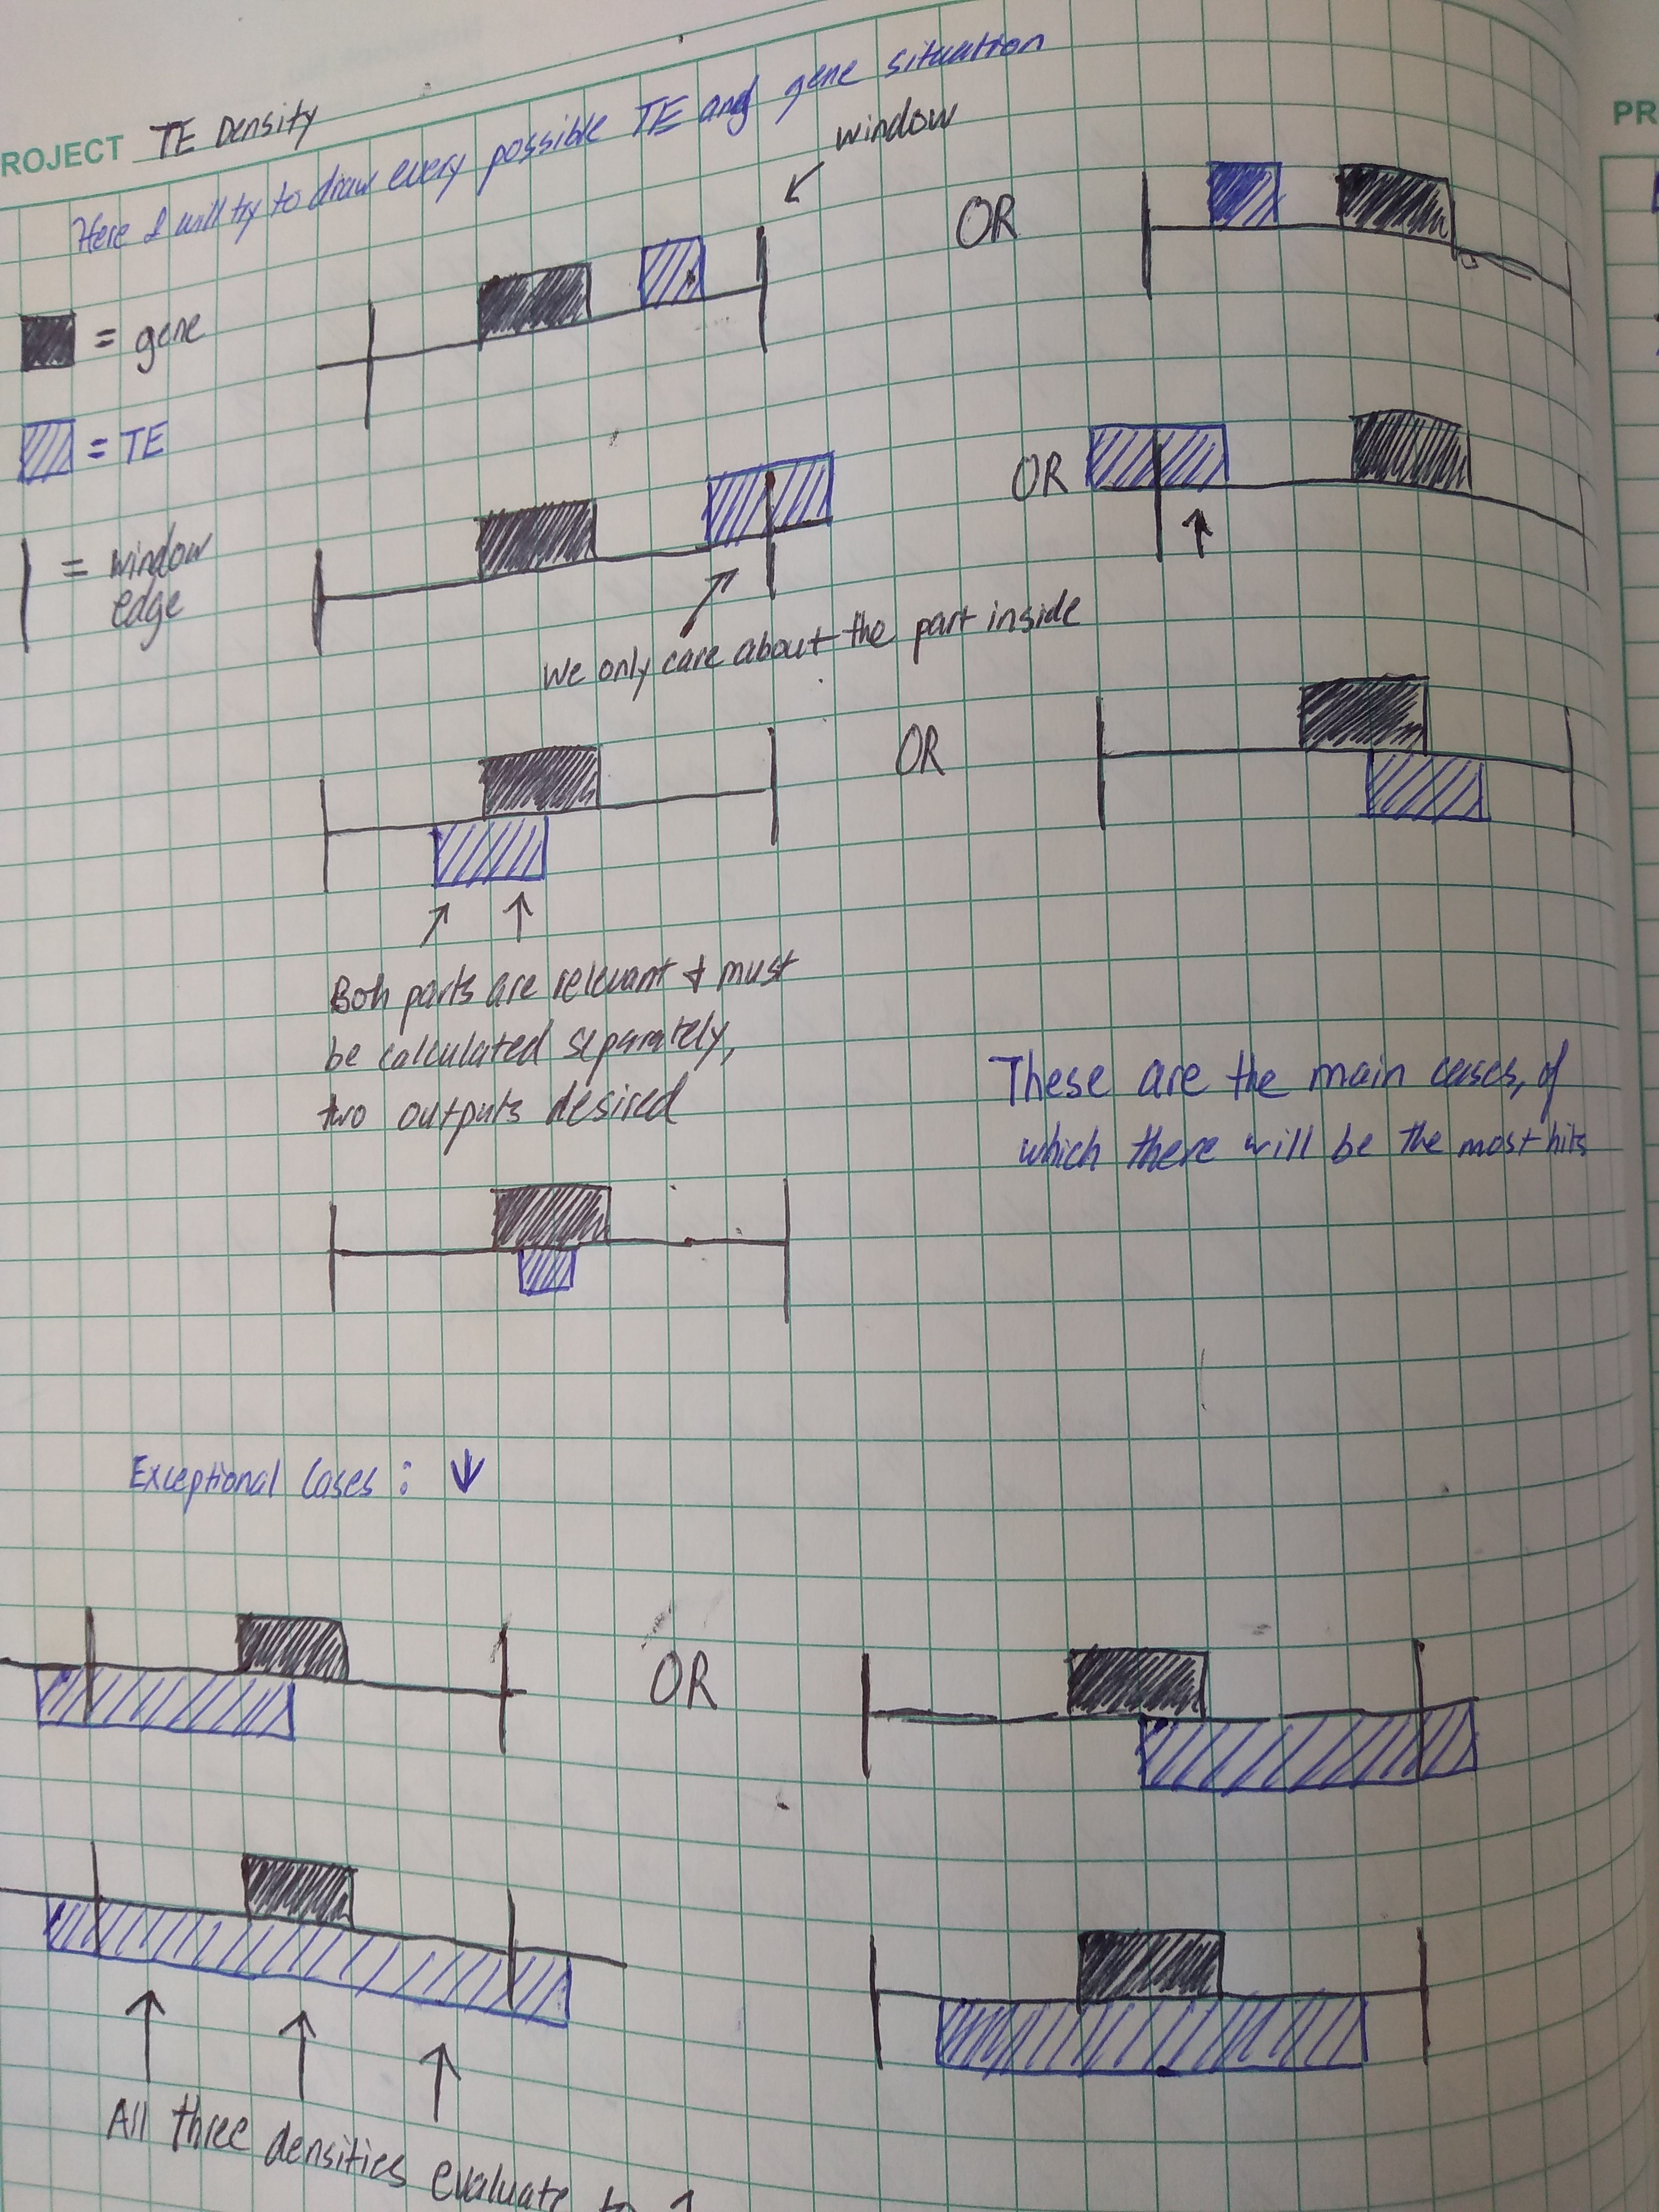 ROJECT TE Density
Here I will try to draw every possible TE and gene situation
window
OR
= gene
= TE
OR
= window
edge
We only care about the part inside
OR
Both parts are relevant & must
be calculated separately,
two outputs desired
These are the main cases, of
which there will be the most hits
Exceptional Cases:
OR
All three densities evaluate to 1
PR